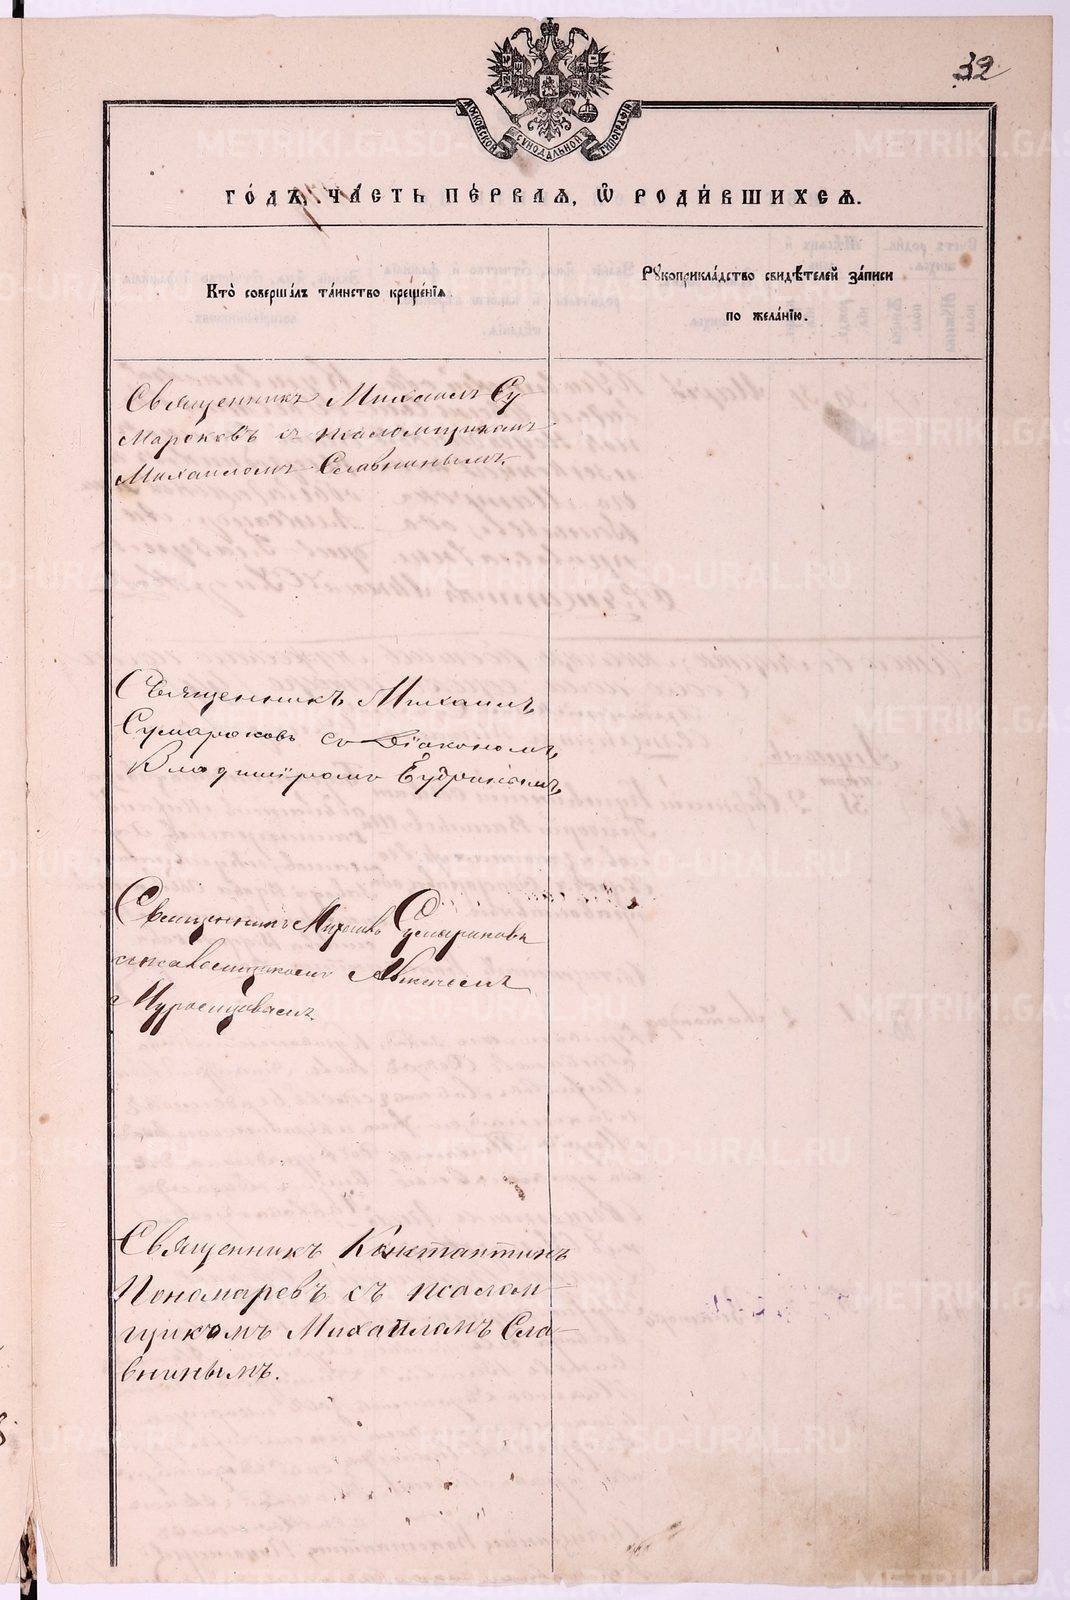 32
МОСКОВСКОЙ СѴНОДАЛЬНОЙ ТИПОГРАФІИ
ГО́ДЪ. ЧА́СТЬ ПЕ́РВАЯ, Ѡ҆ РОДИ́ВШИХСЯ.
Кто̀ соверша́лъ та́инство креще́нїѧ.
Рꙋкоприкла́дство свидѣ́телей за́писи
по жела́нїю.
Священникъ Михаилъ Су
мароковъ съ псаломщикомъ
Михаиломъ Славнинымъ.
Священникъ Михаилъ
Сумароковъ со Діакономъ
Владиміромъ
Священникъ Михаилъ Сумароковъ
съ псаломщикомъ
Священникъ Константинъ
Пономаревъ съ псалом-
щикомъ Михаиломъ Сла-
внинымъ.
METRIKI.GASO-URAL.RU